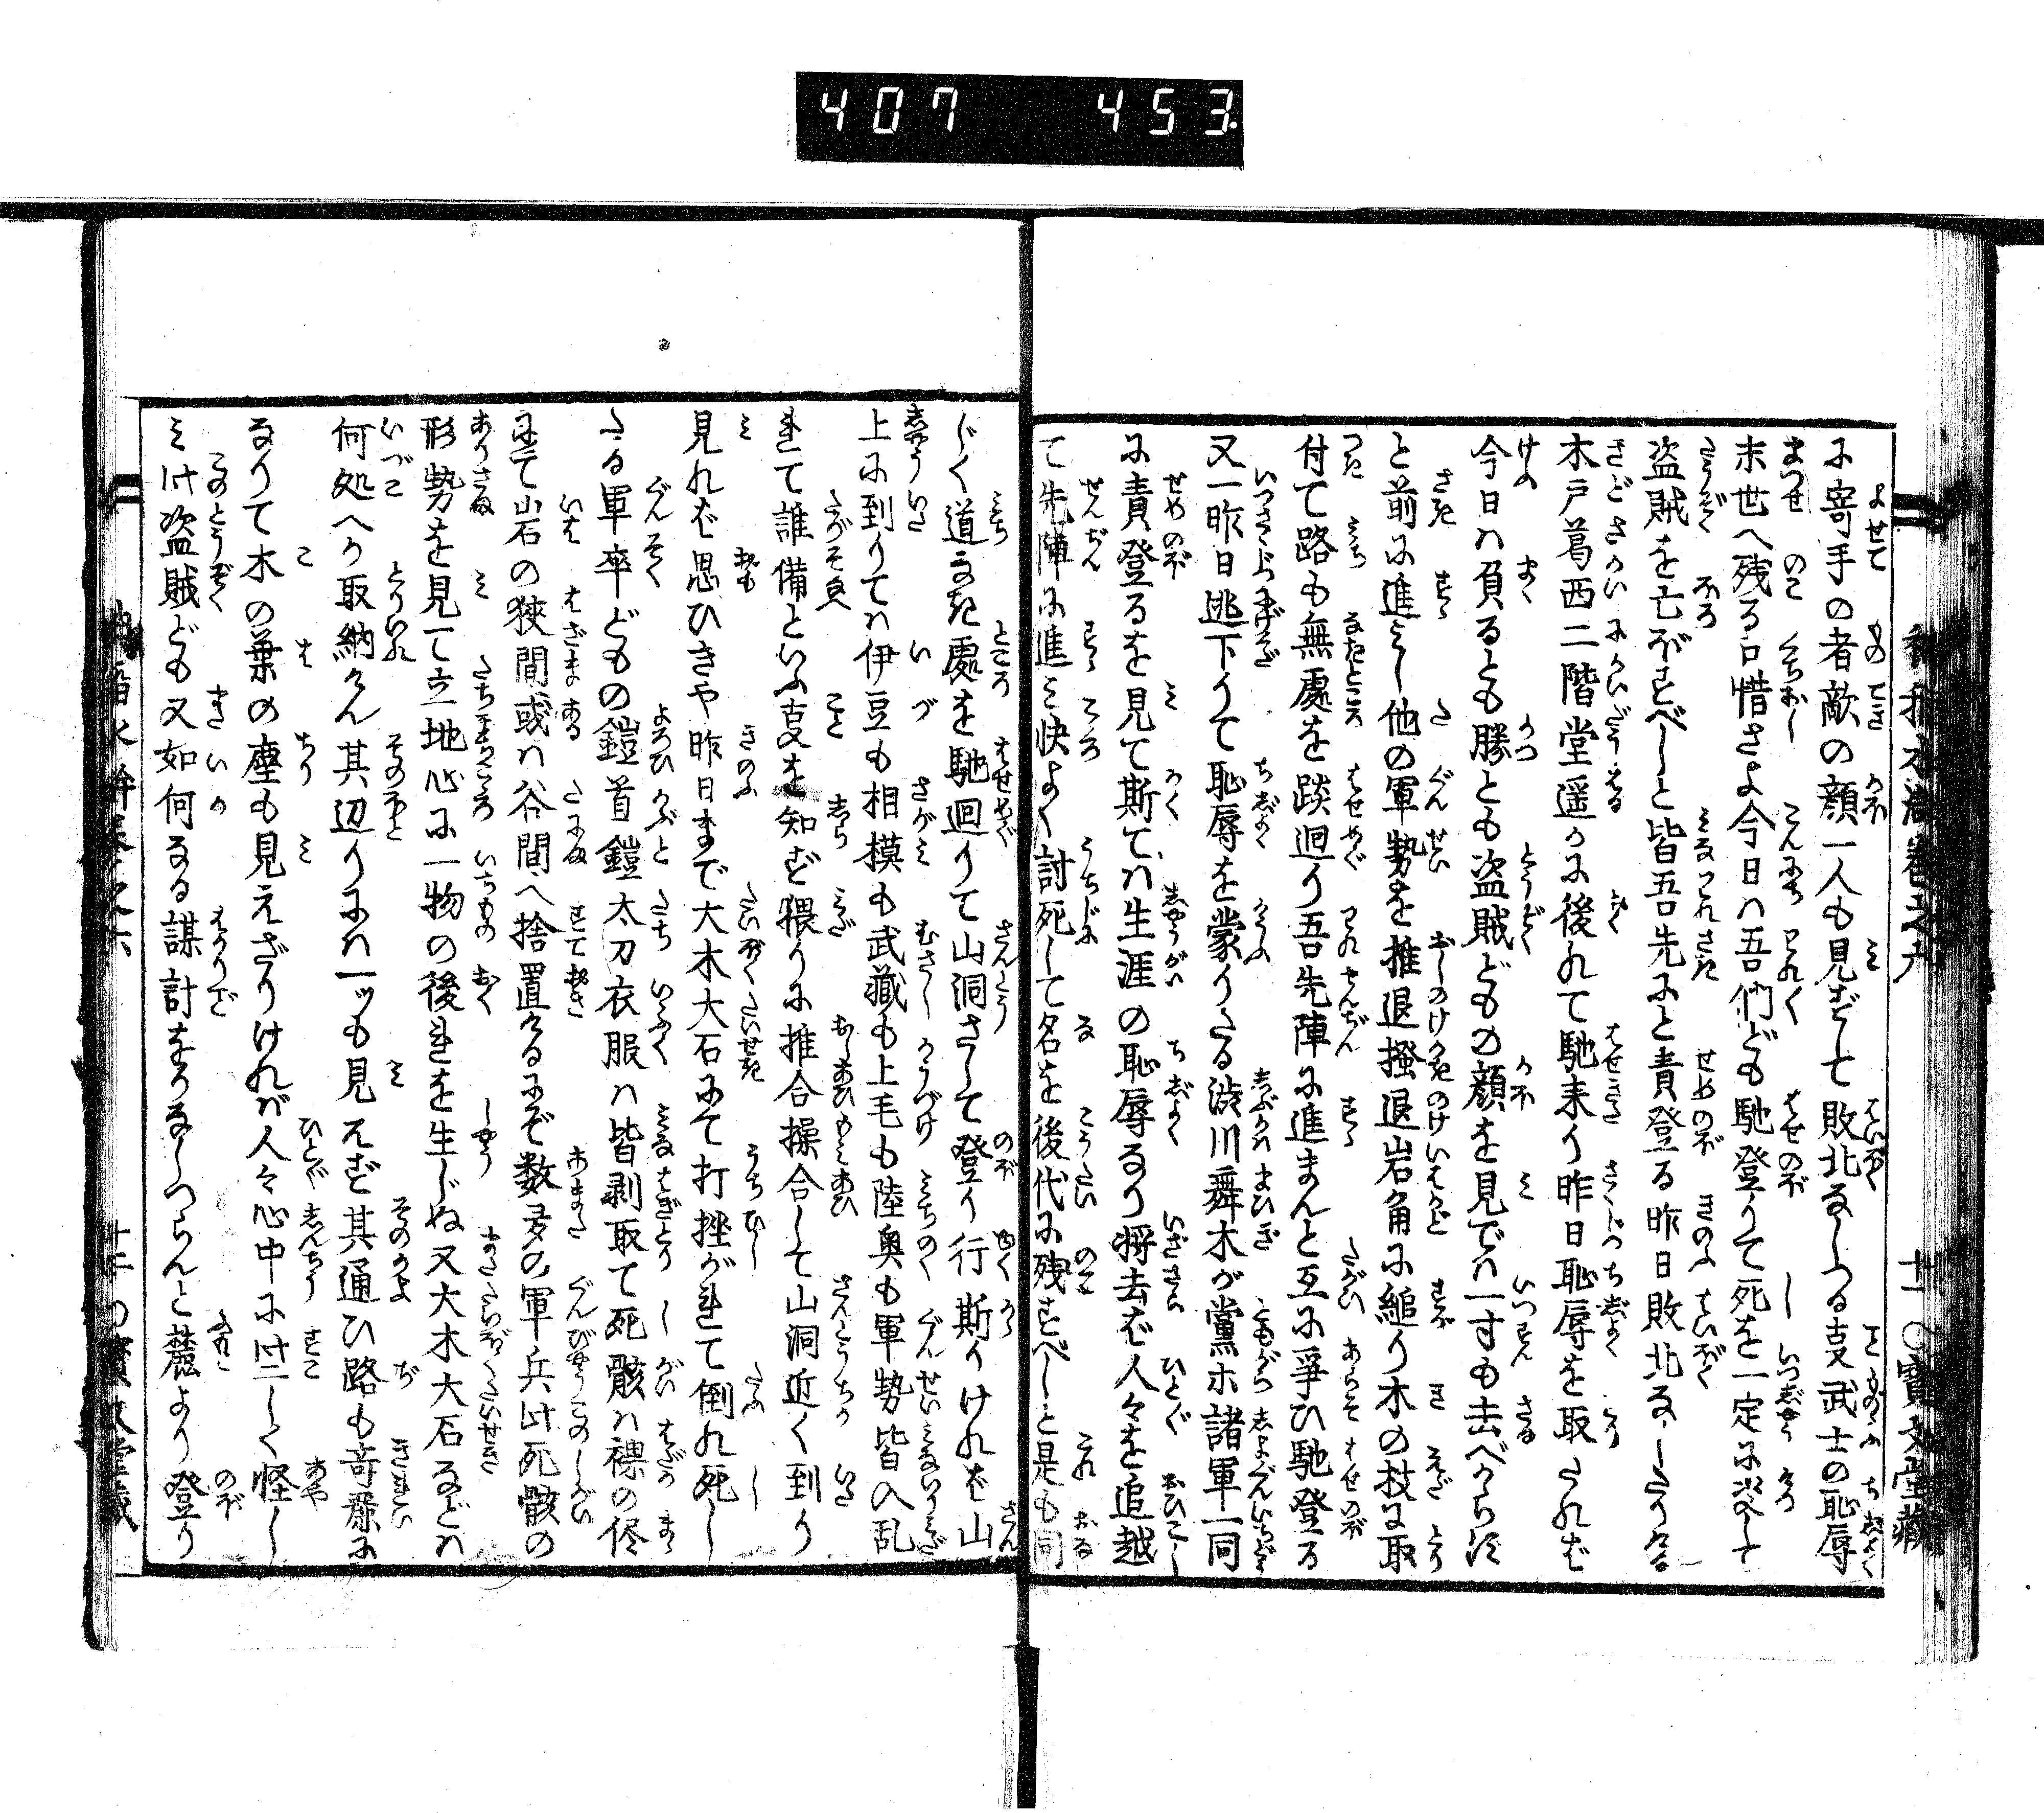 407 453
に寄手の者敵の顔一人も見ずして敗北なしつる支武士の恥辱
末世へ残る口惜さよ今日ハ吾們ども馳登りて死を一定に決して
盗賊を亡ぼすべしと皆吾先にと責登る昨日敗北なしたりける
木戸葛西二階堂遥かに後れて馳来り昨日恥辱を取たれば
今日ハ負るとも勝とも盗賊どもの顔を見でハ一寸も去べからず
と前に進みし他の軍勢を推退掻退岩角に縋り木の枝に取
付て路も無處を踏迴り吾先陣に進まんと互に爭ひ馳登る
又一昨日逃下りて恥辱を蒙りたる渋川舞木が黨ホ諸軍一同
に責登るを見て斯てハ生涯の恥辱なり将去ば人々を追越
て先陣に進み快よく討死して名を後代に残すべしと是も同
じく道なき處を馳迴りて山洞さして登り行斯りければ山
上に到りてハ伊豆も相模も武蔵も上毛も陸奥も軍勢皆入乱
れて誰備といふ支を知ず猥りに推合操合して山洞近く到り
見れば思ひきや昨日まで大木大石にて打挫がれて倒れ死し
たる軍卒どもの鎧首鎧太刀衣服ハ皆剥取て死骸ハ裸の侭
にて岩の狹間或ハ谷間へ捨置けるにぞ数多の軍兵此死骸の
形勢を見て立地心に一物の後れを生じぬ又大木大石などハ
何処へか取納けん其辺りにハ一ッも見えず其通ひ路も竒麗に
なりて木の葉の塵も見えざりけれバ人々心中に此一しく怪し
み此盗賊ども又如何なる謀計をかなしつらんと麓より登り